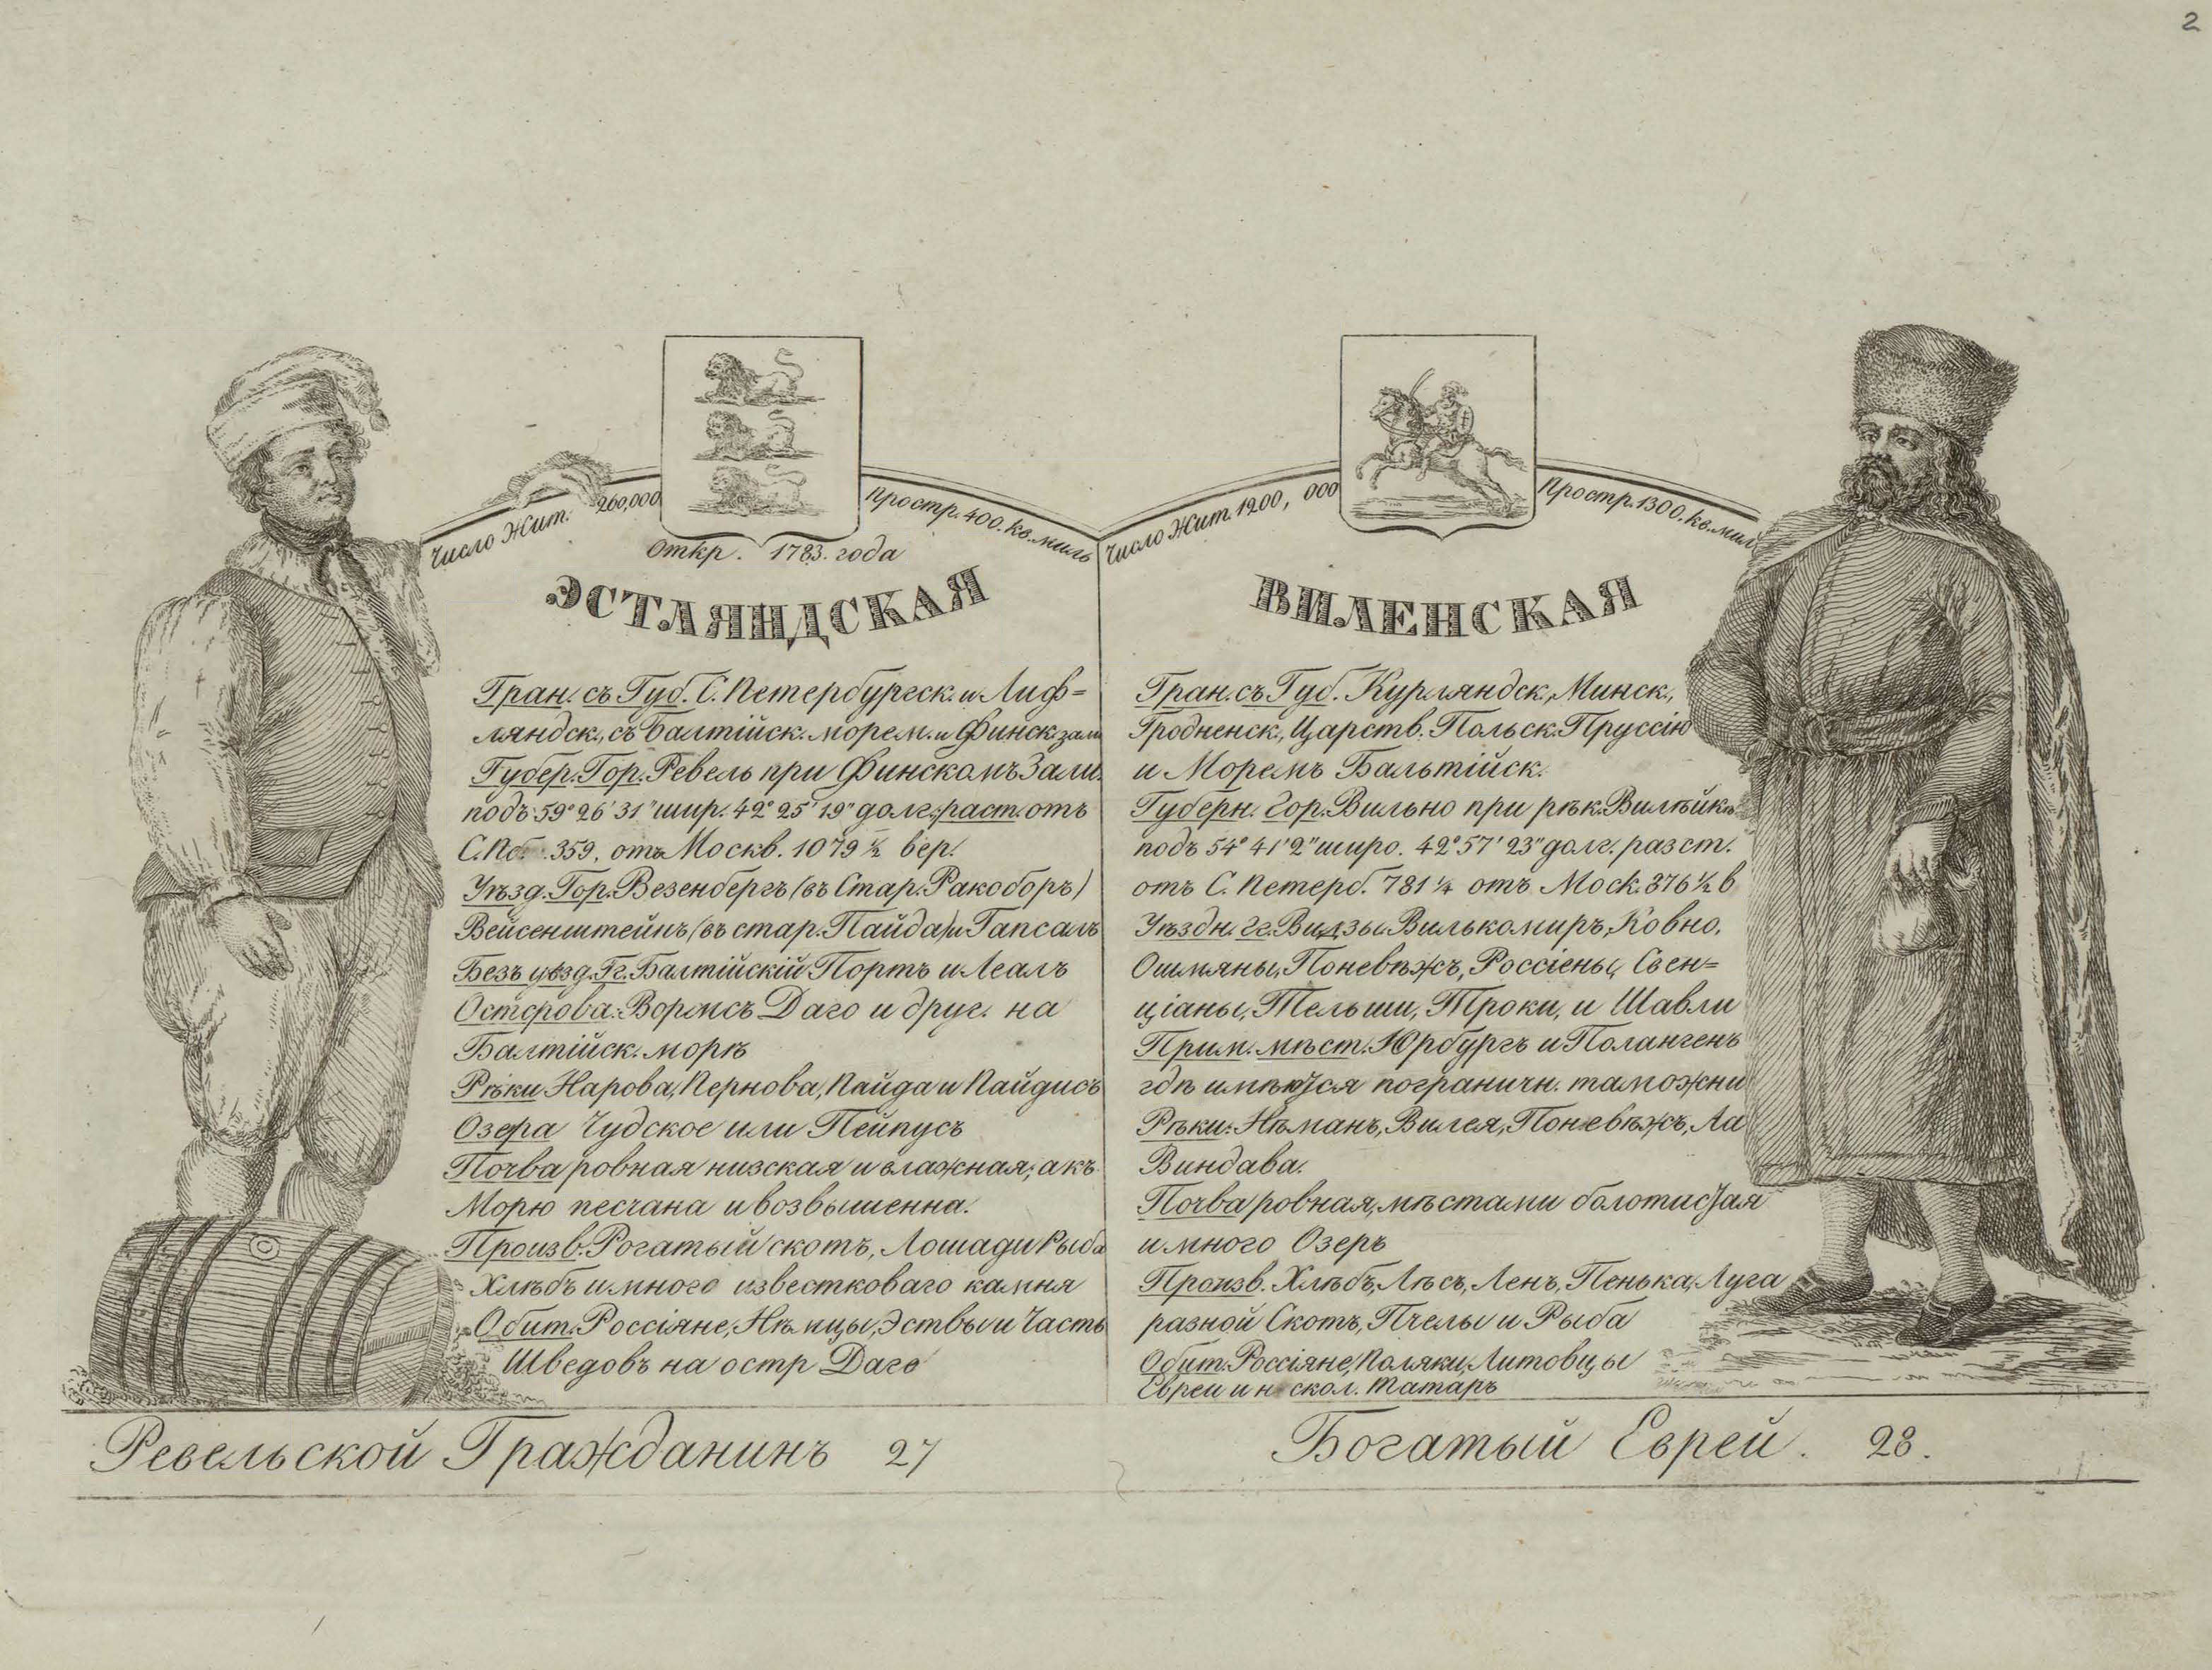 2
Число Жит. 260,000
Простр. 400. кв. миль
Откр. 1783. года
ЭСТЛЯНДСКАЯ
Гран. съ Губ. С. Петербургск. и Лиф=
ляндск., съ Балтійск. морем. и Финск. зали
Губер. Гор. Ревель при Финскомъ Зали.
подъ 59° 26' 31" шир. 42° 25' 19" долг. раст. отъ
С. Пб. 359, отъ Москв. 1079 ½ вер.
Уѣзд. Гор. Везенбергъ (въ Стар. Ракоборъ)
Вейсенштейнъ (въ стар. Пайда) и Гапсаль
Безъ уѣзд. Гг. Балтійскій Портъ и Леалъ
Острова: Вормсъ Даго и друг. на
Балтійск. морѣ
Рѣки Нарова, Пернова, Пайда и Пайдисъ
Озера Чудское или Пейпусъ
Почва ровная низская и влажная; а къ
Морю песчана и возвышенна.
Произв. Рогатый скотъ, Лошади Рыба
Хлѣбъ и много известковаго камня
Обит. Россіяне, Нѣмцы, Эствы и Часть
Шведовъ на остр Даго
Ревельской Гражданинъ 27
Число Жит. 1200, 000
Простр. 1300. кв. миль
ВИЛЕНСКАЯ
Гран. съ Губ. Курляндск., Минск.,
Гродненск., Царств. Польск. Пруссію
и Моремъ Бальтійск.
Губерн. Гор. Вильно при рѣк. Вилѣйкѣ
подъ 54° 41' 2" широ. 42° 57' 23" долг. разст.
отъ С. Петерб. 781 ¼ отъ Моск. 876 ½ в
Уѣздн. гг. Видзы Вилькомиръ, Ковно,
Ошмяны, Поневѣжъ, Россіены, Свен=
ціаны, Тельши, Троки, и Шавли
Прим. мѣст. Юрбургъ и Полангенъ
гдѣ имѣются пограничн. таможни
Рѣки: Нѣманъ, Вилея, Поневѣжъ, Аа
Виндава.
Почва ровная, мѣстами болотистая
и много Озеръ
Произв. Хлѣбъ, Лѣсъ, Ленъ, Пенька, Луга
разной Скотъ, Пчелы и Рыба
Обит. Россіяне, Поляки, Литовцы
Евреи и нѣскол. Татаръ
Богатый Еврей. 28.